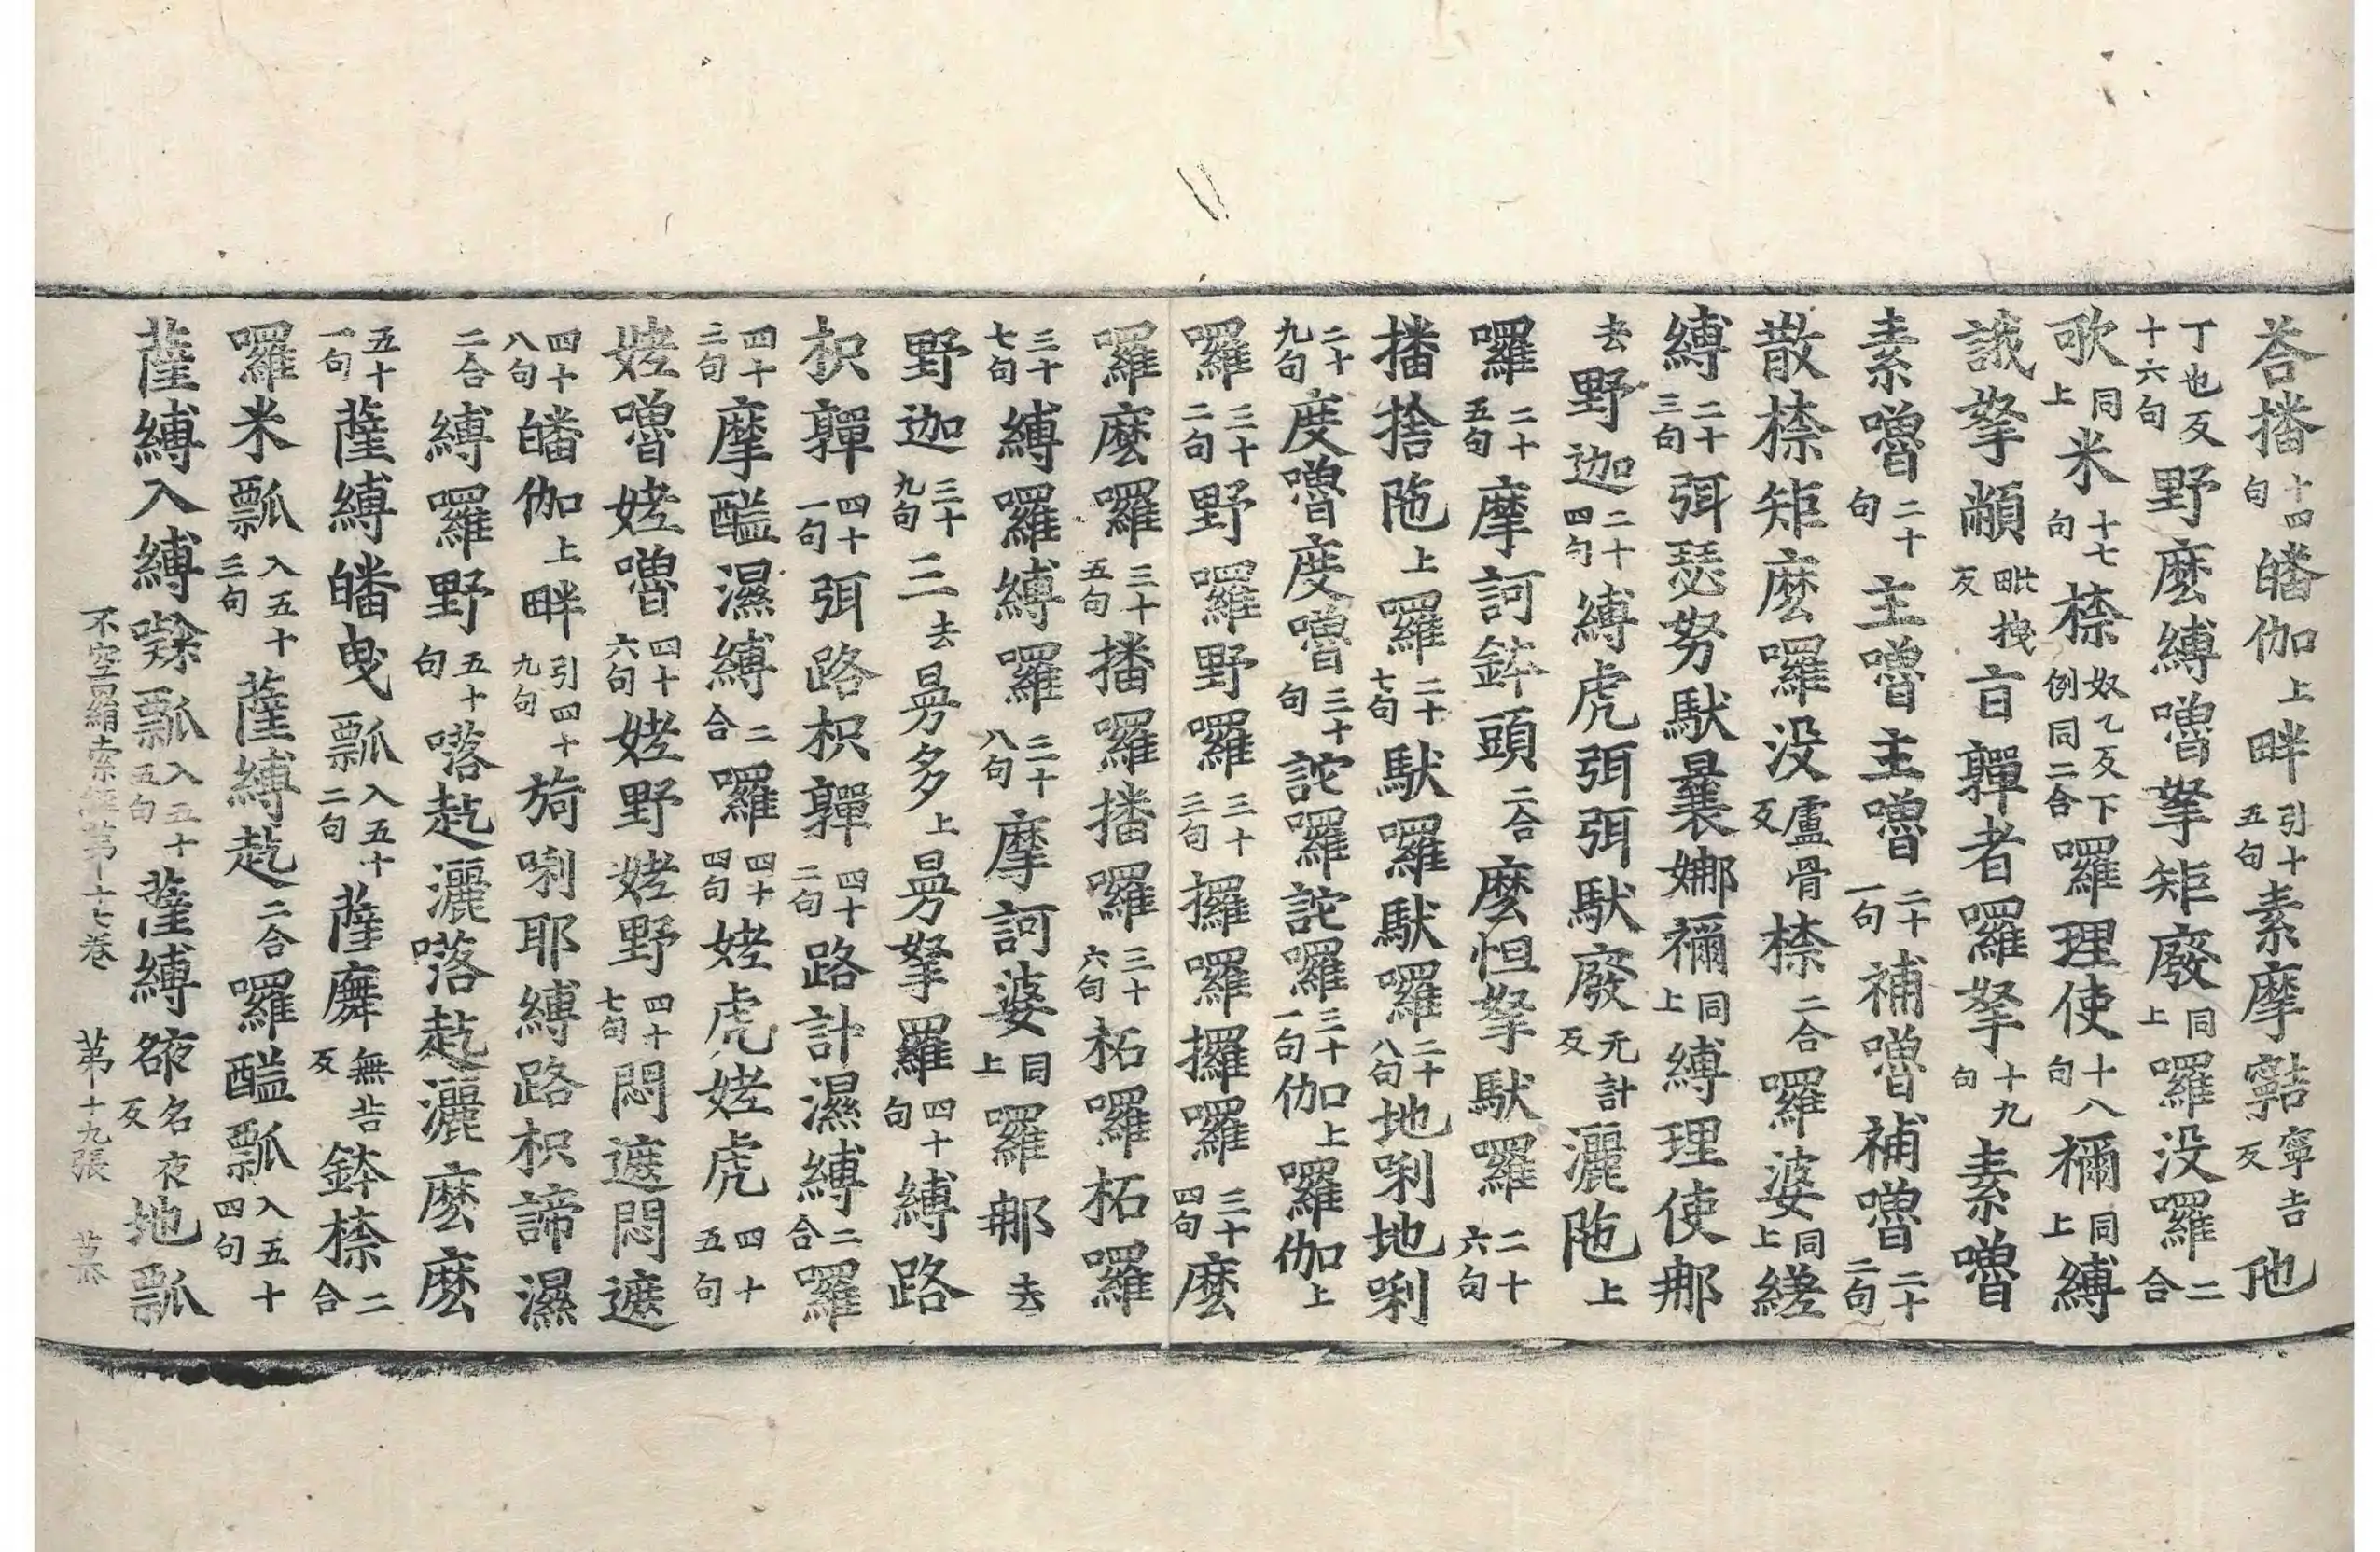 荅播十四句皤伽上畔引十五句素摩㝿寧吉反他
丁也反十六句野麽縛嚕拏矩廢同上囉没囉二合
歌同上米十七句㮈奴乙反下例同二合囉理使十八句禰同上縛
誐拏䫌毗拽反盲鄿者囉拏十九句素嚕
素嚕二十句主嚕主嚕二十一句補嚕補嚕二十二句
散㮈矩麽囉没盧骨反㮈二合囉婆同上縒
縛二十三句弭瑟努䭾曩娜禰同上縛理使那
去野迦二十四句縛虎弭弭䭾廢无計反灑陁上
囉二十五句摩訶鉢頭二合麽怛拏䭾囉二十六句
播捨陁上囉二十七句䭾囉䭾囉二十八句地唎地唎
二十九句度嚕度嚕三十句詑囉詑囉三十一句伽上囉伽上
囉三十二句野囉野囉三十三句攞囉攞囉三十四句麽
囉麽囉三十五句播囉播囉三十六句柘囉柘囉
三十七句縛囉縛囉三十八句摩訶婆同上囉那去
野迦三十九句三去曼多上曼拏羅四十句縛路
枳鄿四十一句弭路枳鄿四十二句路計濕縛二合囉
四十三句摩醯濕縛二合囉四十四句㛐虎㛐虎四十五句
㛐嚕㛐嚕四十六句㛐野㛐野四十七句悶遮悶遮
四十八句皤伽上畔引四十九句旖唎耶縛路枳諦濕
二合縛囉野五十句㗉訖灑㗉訖灑麽麽
五十一句薩縛皤曳瓢入五十二句薩廡無告反鉢㮈二合
囉米瓢入五十三句薩縛訖二合囉醯瓢入五十四句
薩縛入縛㘓瓢入五十五句薩縛𧙃名夜反地瓢
不空羂索經第十七卷　第十九張　慕